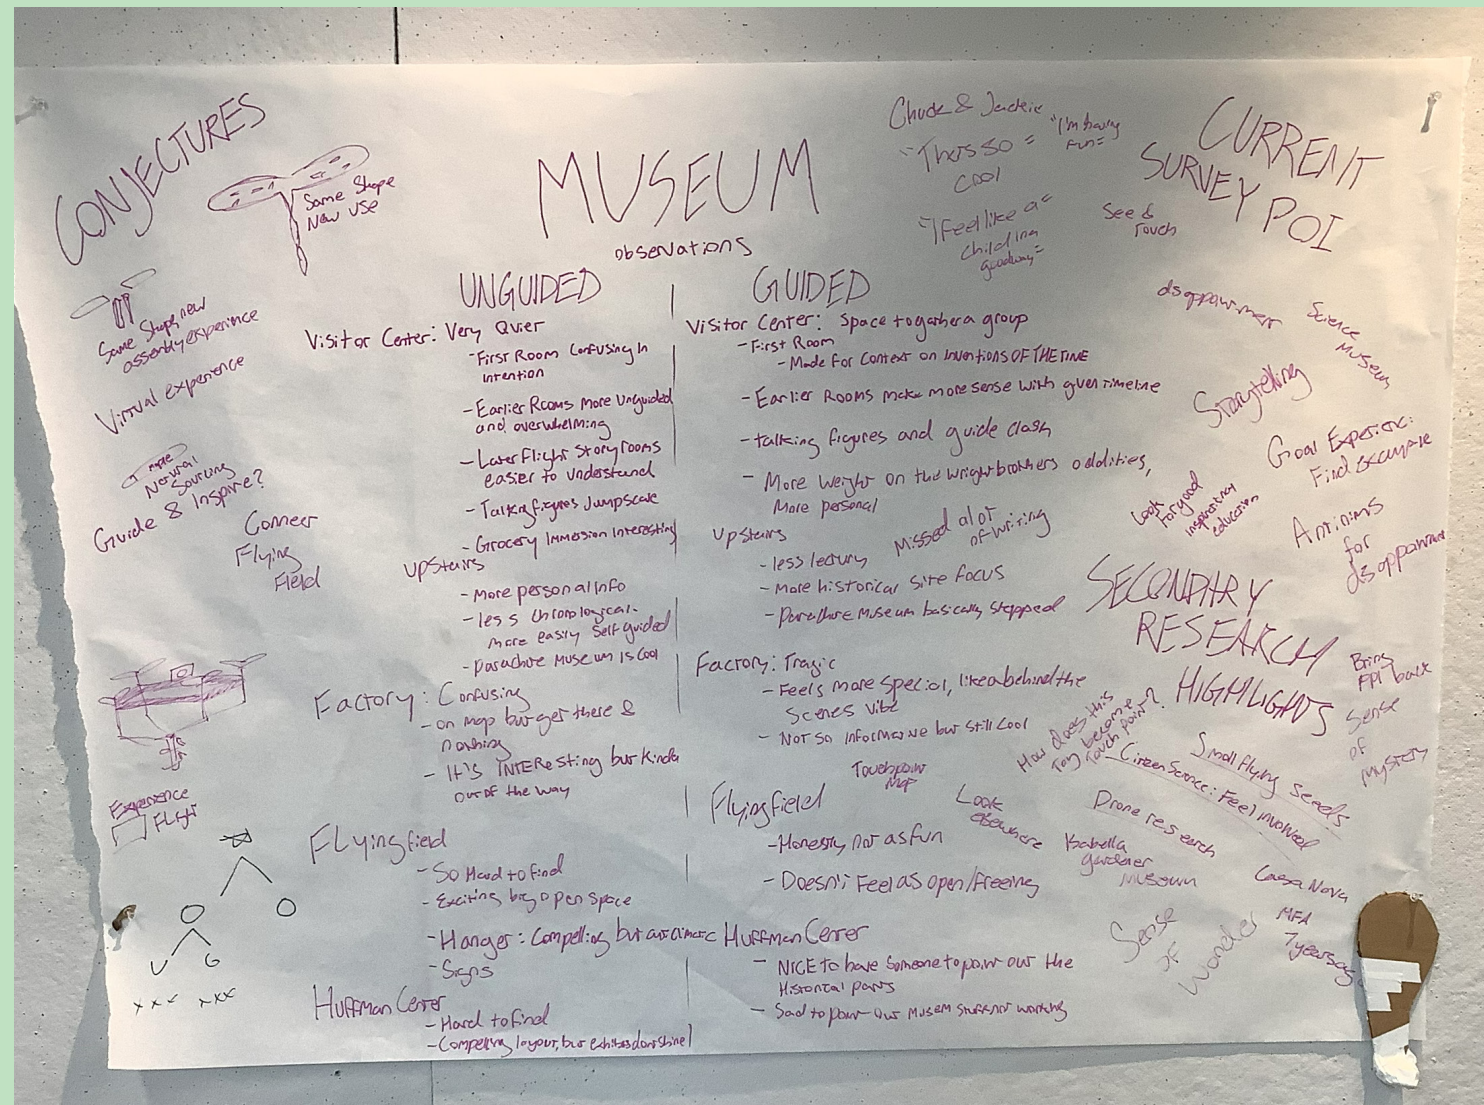 CONJECTURES
Same Shape
New Use
Same Shape, new
assembly experience
Virtual experience
more
Natural
Sourcing
Guide & Inspire?
Connect
Flying
Field
Experience
Flight
U
G
x x x
x x x
MUSEUM
observations
UNGUIDED
Visitor Center: Very Quiet
- First Room Confusing In
intention
- Earlier Rooms more unguided
and overwhelming
- Later Flight Story rooms
easier to understand
- Talking figures Jumpscare
- Grocery Immersion Interesting
Upstairs
- More personal info
- less chronological.
more easily self guided
- parachute museum is cool
Factory: Confusing
- on map but get there &
nothing
- It's INTEResting but kinda
out of the way
FLying field
- So Hard to find
- Exciting big open space
- Hanger: Compelling but anticlimatic
- Signs
Huffman Center
- Hard to find
- Compelling layout, but exhibits dont shine!
GUIDED
Visitor Center: Space to gather a group
- First Room
- Made for Context on inventions OF THE TIME
- Earlier Rooms make more sense with given timeline
- talking figures and guide clash
- More weight on the wright brothers oddities,
More personal
Upstairs
Missed alot
of writing
- less lectury
- More historical site focus
- Parachute Museum basically skipped
Factory: Tragic
- Feels more special, like a behind the
Scenes vibe
- Not so informative but still cool
Touchpoint
Map
Flying field
- Honestly not as fun
- Doesn't Feel as open/freeing
Huffman Center
- NICE to have someone to point out the
Historical parts
- Sad to point out musem stuff not working
Chuck & Jackie
"Thats so"
cool
"I'm having
fun"
"I feel like a"
child in a
good way"
CURRENT
SURVEY POI
See &
Touch
dsappointment
Science
Museum
Storytelling
Goal Experienc:
Find example
Look
For good
inspirational
education
Antinims
for
dsappointment
SECONDARY
RESEARCH
HIGHLIGHTS
Bring
PPl back
Sense
of
mystery
How does this
Toy become
Touch point?
Small flying seeds
Citizen Science: Feel involved
Drone research
Look
elsewhere
Isabella
gardener
Museum
Casa Nova
MFA
7 years ago
Sense
of
wonder